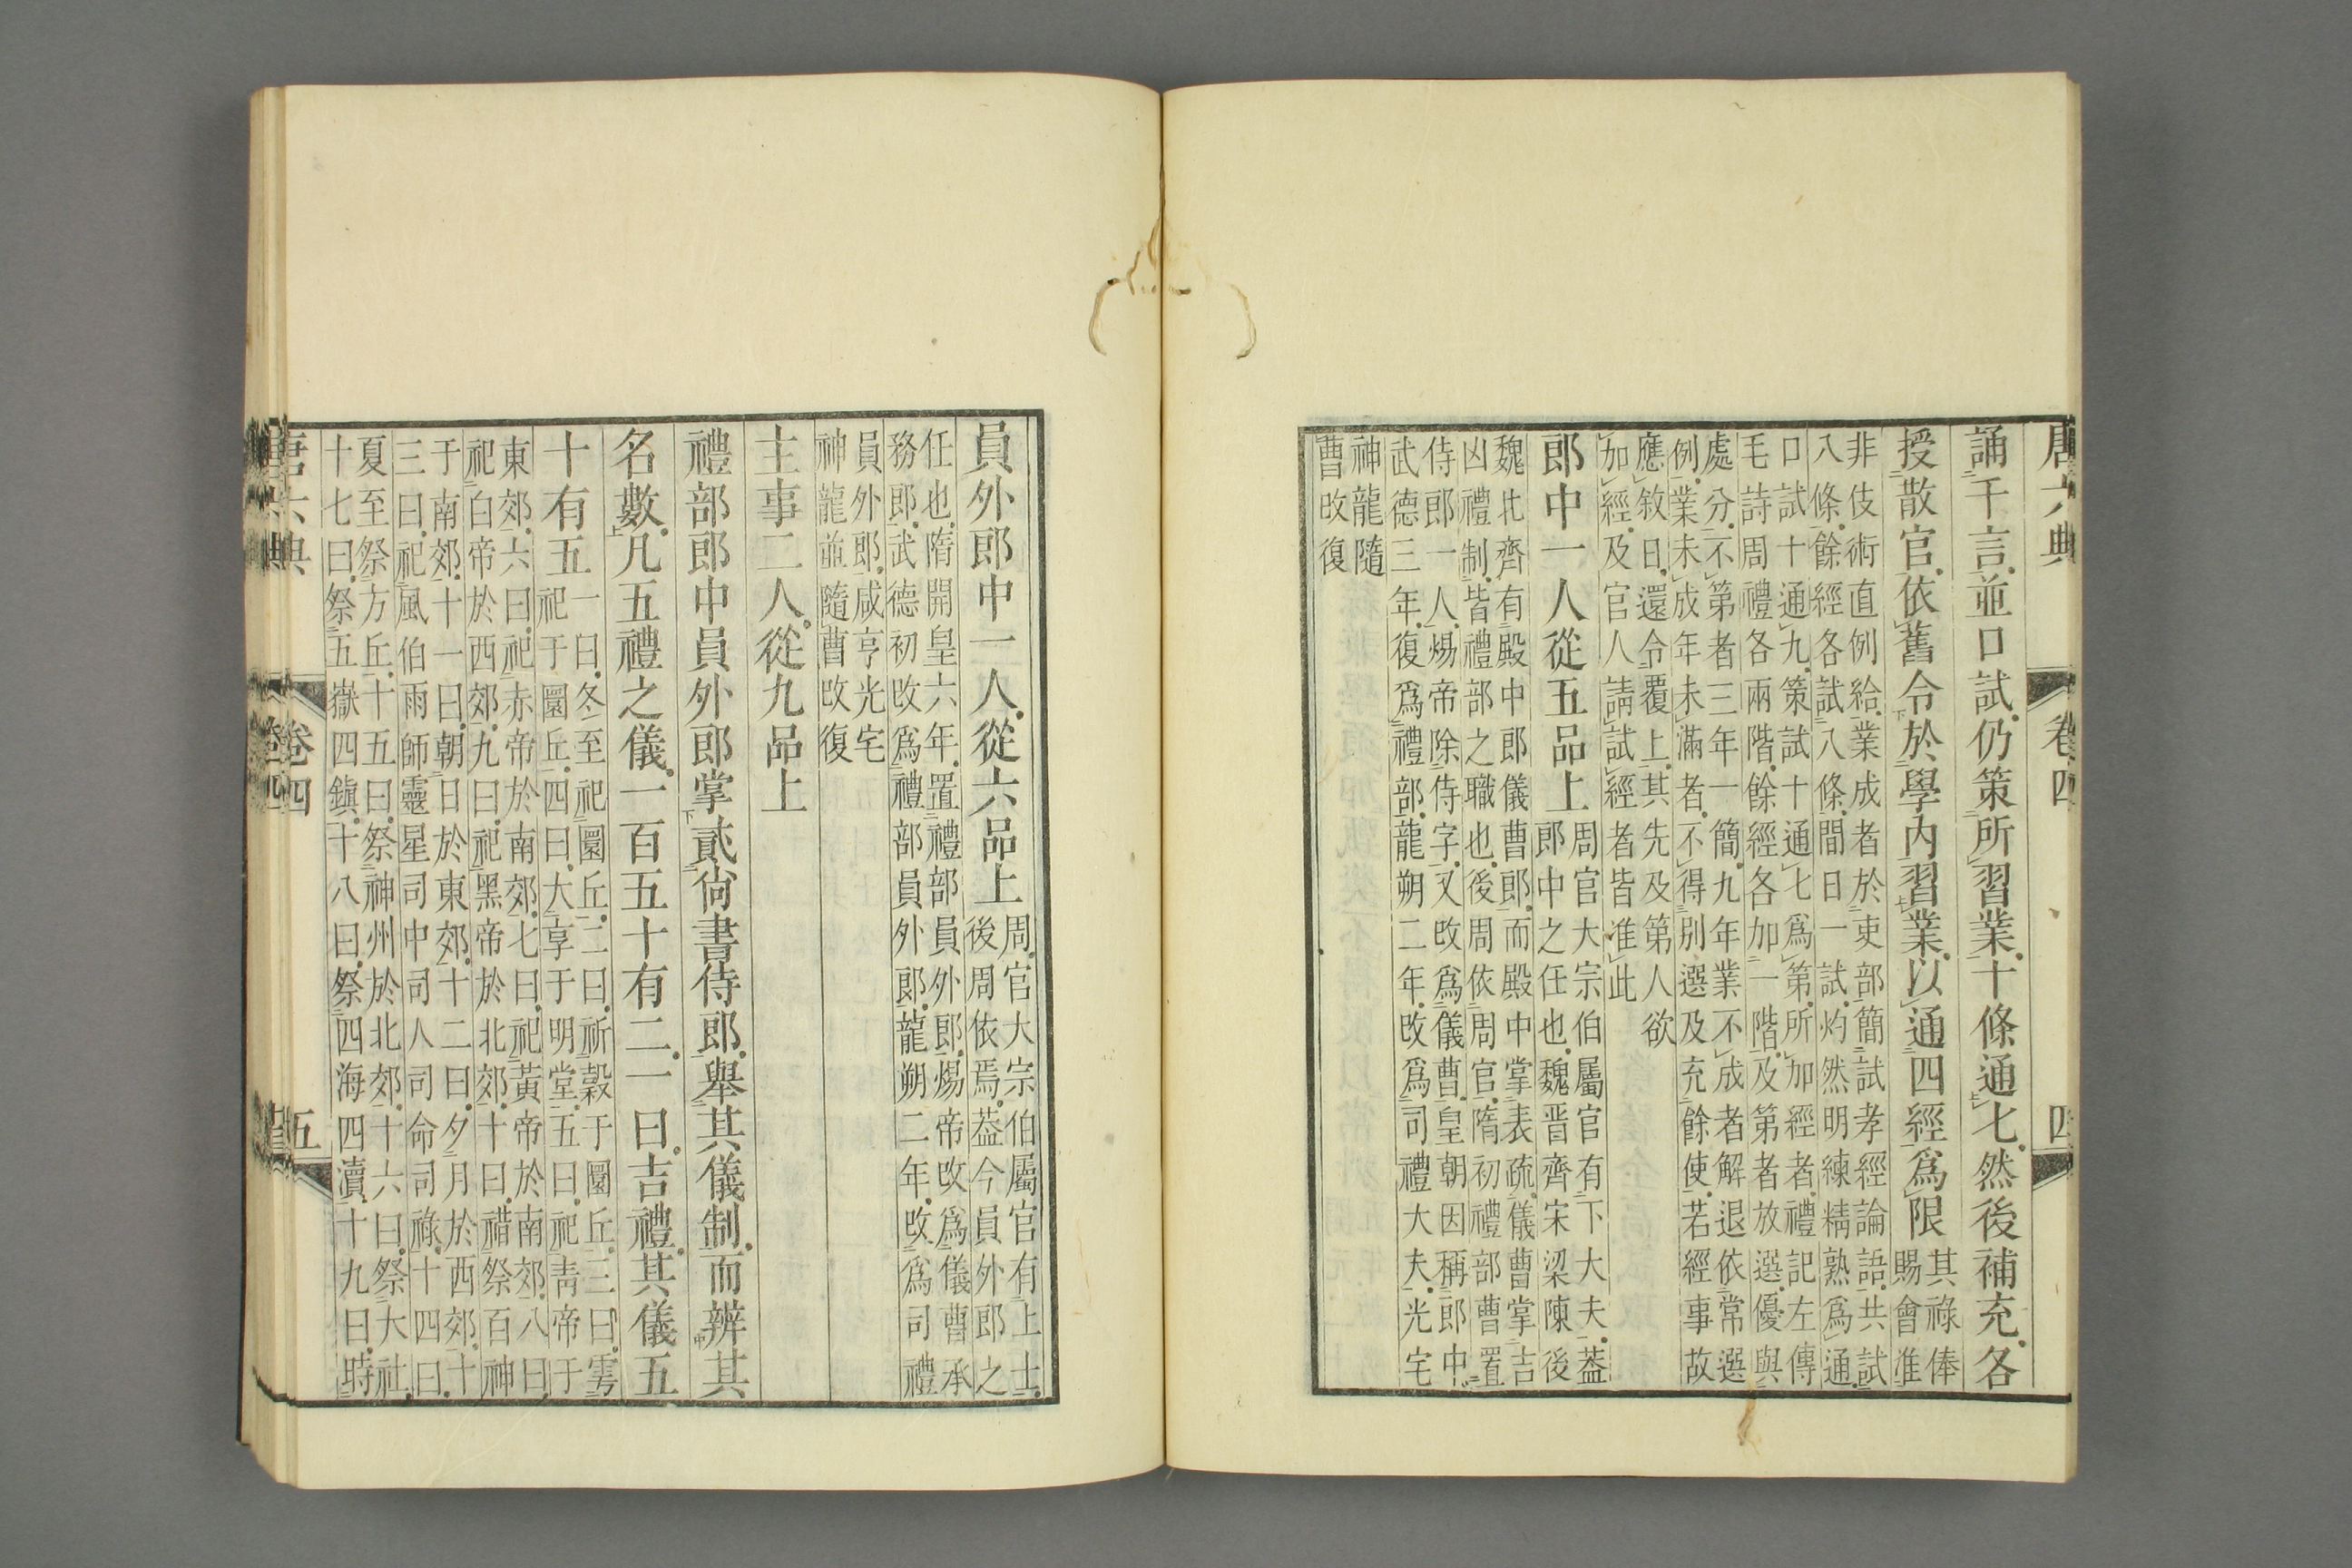 唐六典 卷四 四
誦千言並口試仍策所習業十條通七然後補充各
授散官依舊令於學內習業以通四經爲限
其祿俸
賜會准
非伎術直例給業成者於吏部簡試孝經論語共試
八條餘經各試八條間日一試灼然明練精熟爲通
口試十通九策試十通七爲第所加經者禮記左傳
毛詩周禮各兩階餘經各加一階及第者放選優與
處分不第者三年一簡九年業不成者解退依常選
例業未成年未滿者不得別選及充餘使若經事故
應敘日還令覆上其先及第人欲
加經及官人請試經者皆准此
郎中一人從五品上
周官大宗伯屬官有下大夫葢
郎中之任也魏晉齊宋梁陳後
魏北齊有殿中郎儀曹郎而殿中掌表疏儀曹掌吉
凶禮制皆禮部之職也後周依周官隋初禮部曹置
侍郎一人煬帝除侍字又改爲儀曹皇朝因稱郎中
武德三年復爲禮部龍朔二年改爲司禮大夫光宅
神龍隨
曹改復
員外郎中一人從六品上
周官大宗伯屬官有上士
後周依焉葢今員外郎之
任也隋開皇六年置禮部員外郎煬帝改爲儀曹承
務郎武德初改爲禮部員外郎龍朔二年改爲司禮
員外郎咸亨光宅
神龍並隨曹改復
主事二人從九品上
禮部郎中員外郎掌貳尚書侍郎舉其儀制而辨其
名數凡五禮之儀一百五十有二一曰吉禮其儀五
十有五
一曰冬至祀圜丘二曰祈穀于圜丘三曰雩
祀于圜丘四曰大享于明堂五曰祀青帝于
東郊六曰祀赤帝於南郊七曰祀黃帝於南郊八曰
祀白帝於西郊九曰祀黑帝於北郊十曰䄍祭百神
于南郊十一曰朝日於東郊十二曰夕月於西郊十
三曰祀風伯雨師靈星司中司人司命司祿十四曰
夏至祭方丘十五曰祭神州於北郊十六曰祭大社
十七曰祭五嶽四鎮十八曰祭四海四瀆十九曰時
唐六典 卷四 五